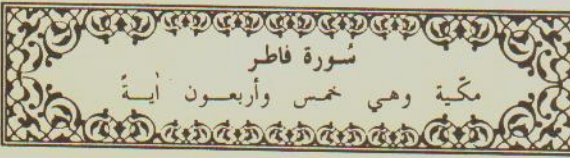 سُورة فاطر
مكّية وهي خمس وأربعـــون اٰيــةً